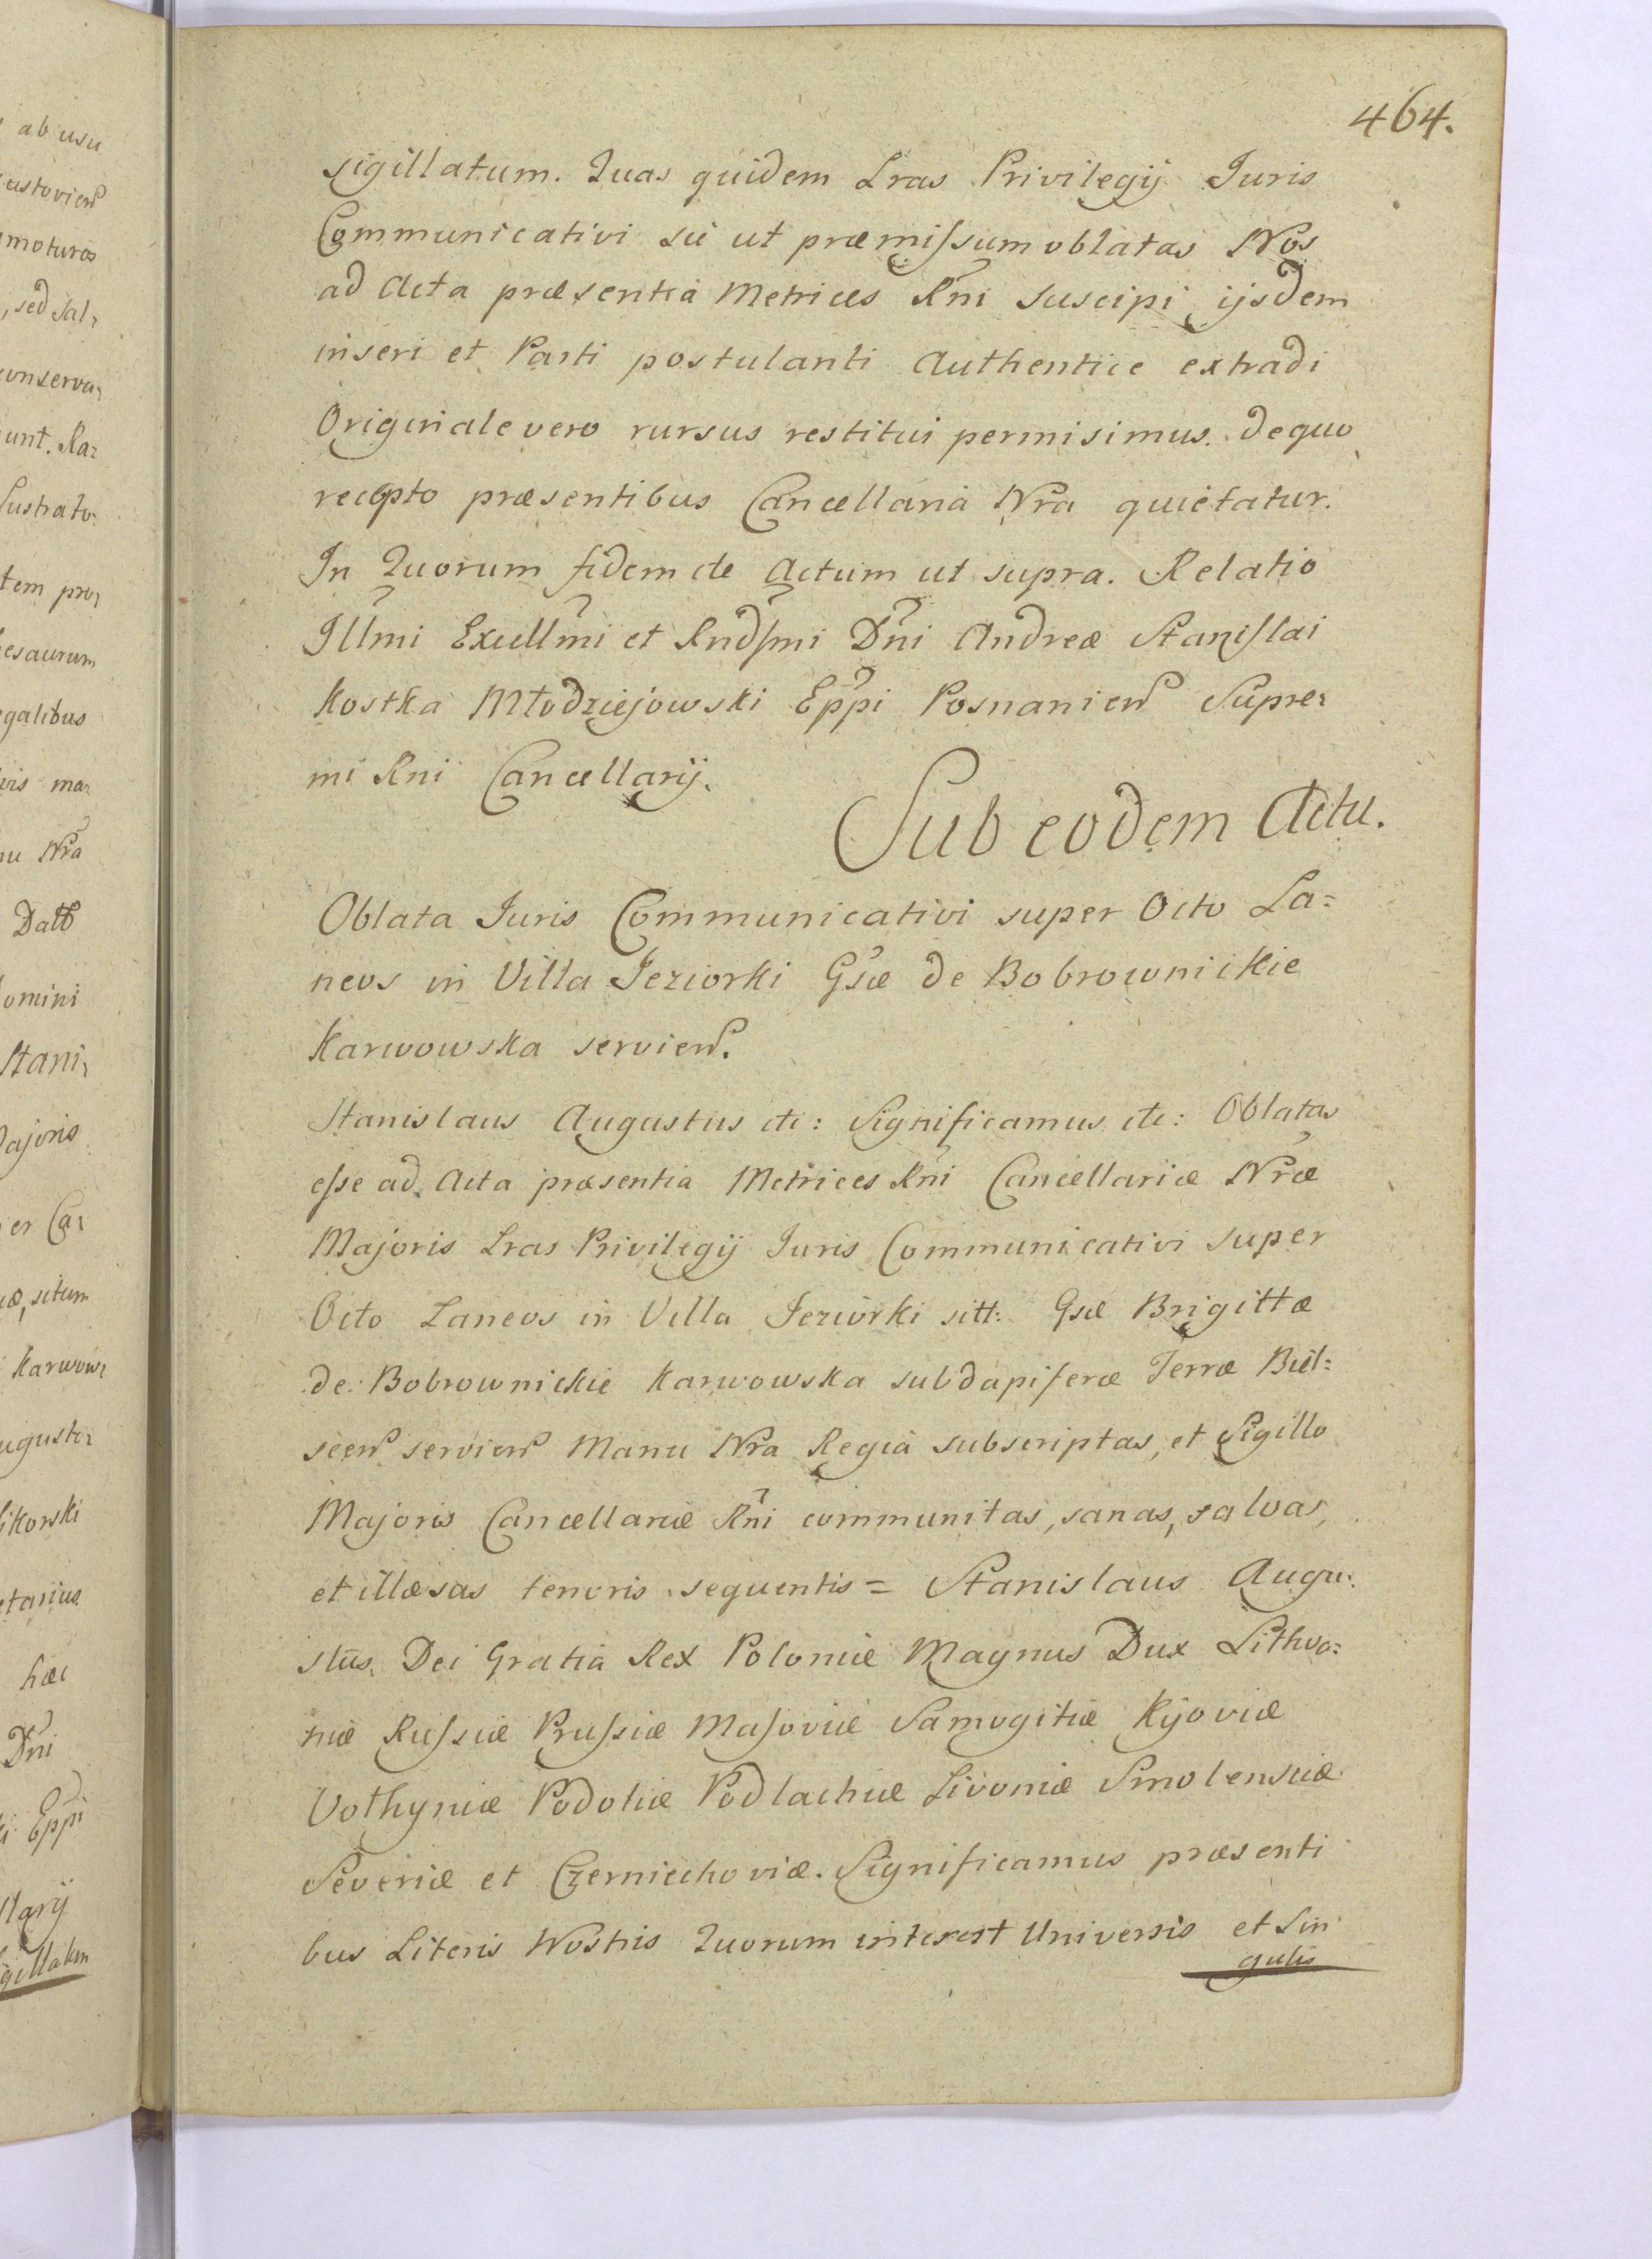 464.
sigillatum. Quas quidem Lras Privilegij Juris
Communicativi sic ut præmissum oblatas Nos
ad Acta præsentia Metrices Rni suscipi ijsdem
inseri et Parti postulanti Authentice extradi
Originale vero rursus restitui permisimus. de quo
recepto præsentibus Cancellaria Nra quietatur.
In Quorum fidem etc Actum ut supra. Relatio
Illmi Excellmi et Rndsmi Dni Andreæ Stanislai
Kostka Młodziejowski Eppi Posnanien Supre:
mi Rni Cancellarij.
Sub eodem Actu.
Oblata Juris Communicativi super Octo La=
neos in Villa Jeziorki Gsæ de Bobrownickie
Karwowska servien.
Stanislaus Augustus etc: Significamus etc: Oblatas
esse ad Acta præsentia Metrices Rni Cancellariæ Nræ
Majoris Lras Privilegij Juris Communicativi super
Octo Laneos in Villa Jeziorki sitt: Gsæ Brigittæ
de Bobrownickie Karwowska subdapiferæ Terræ Biel=
scen servien Manu Nra Regia subscriptas, et Sigillo
Majoris Cancellariæ Rni communitas, sanas, salvas,
et illæsas tenoris sequentis = Stanislaus Augu:
stus Dei Gratia Rex Poloniæ Magnus Dux Lithva=
niæ Russiæ Prussiæ Masoviæ Samogitiæ Kijoviæ
Volhyniæ Podoliæ Podlachiæ Livoniæ Smolensciæ
Severiæ et Czerniechoviæ. Significamus præsenti
bus Literis Nostris Quorum interest Universis et Sin
gulis